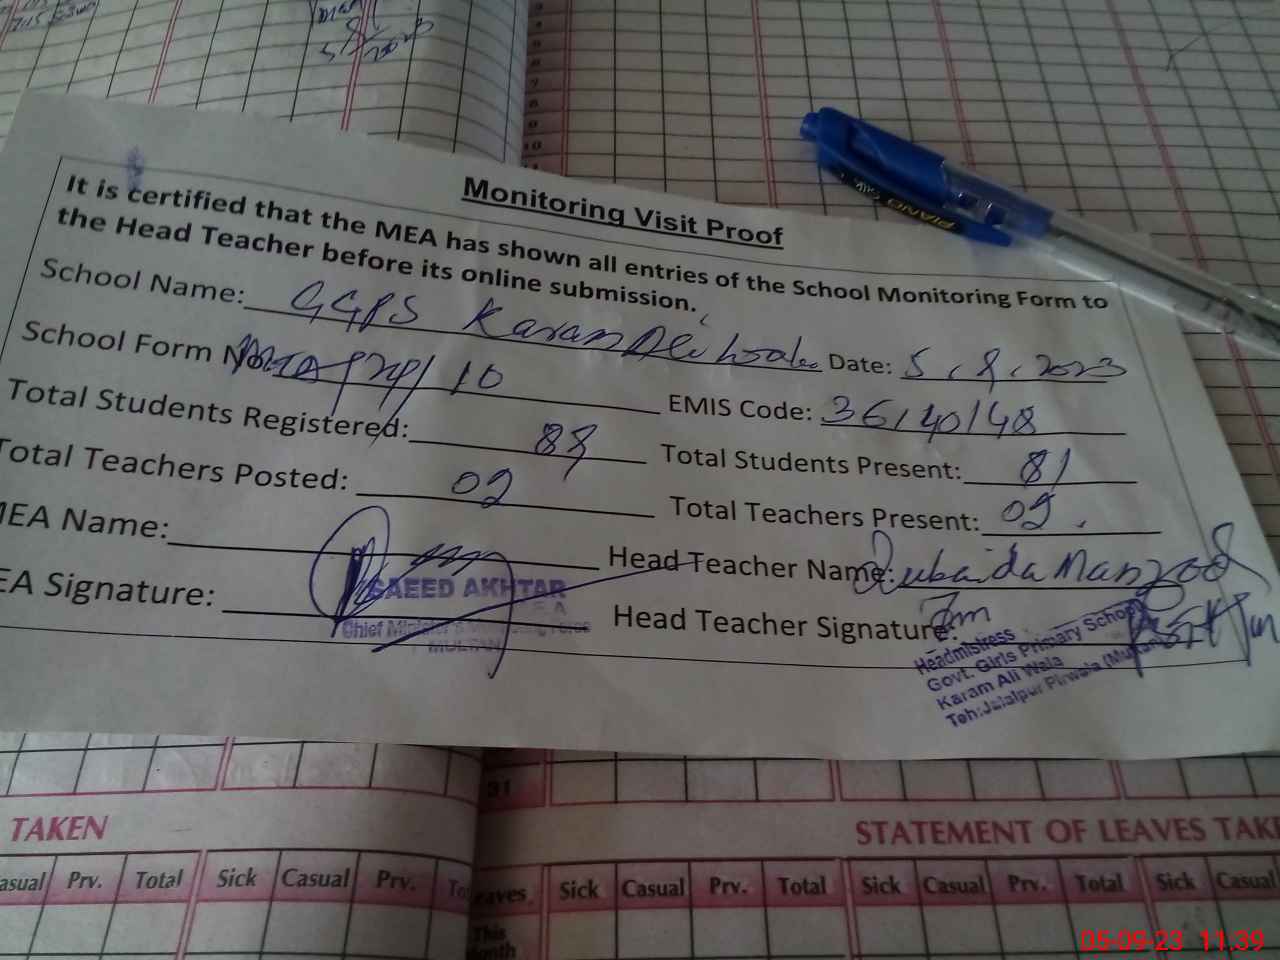 Monitoring Visit Proof
It is certified that the MEA has shown all entries of the School Monitoring Form to
the Head Teacher before its online submission.
School Name: GGPS Karam Ali Wala Date: 5.9.2023
School Form No. /10 EMIS Code: 36140148
Total Students Registered: 88 Total Students Present: 81
Total Teachers Posted: 02 Total Teachers Present: 02.
MEA Name: Head Teacher Name: Zubaida Manzoor
EA Signature: Head Teacher Signature:
SAEED AKHTAR
Chief Minister's Monitoring Force
MULTAN
Headmistress
Govt. Girls Primary School
Karam Ali Wala
Teh: Jalalpur Pirwala (Multan)
PIANO
7
8
9
10
31
TAKEN
STATEMENT OF LEAVES TAKE
asual Prv. Total Sick Casual Prv. To
eaves Sick Casual Prv. Total Sick Casual Prv. Total Sick Casual
This
Month
05-09-23 11:39